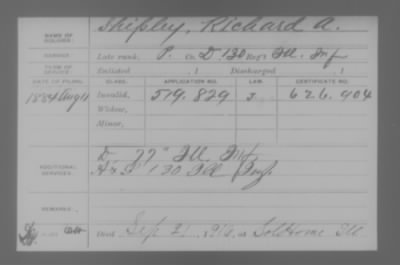 NAME OF SOLDIER: Shipley, Richard A.
SERVICE: Late rank, P. Co. D, 130 Reg't Ill. Inf.
TERM OF SERVICE: Enlisted , 1 Discharged , 1
DATE OF FILING. CLASS. APPLICATION NO. LAW. CERTIFICATE NO.
1884 Aug 11 Invalid, 519.829 626.904
Widow,
Minor,
ADDITIONAL SERVICES: D. 77" Ill. Inf.
A & D 130 Ill Inf
REMARKS:
Died Sep 21, 1914, at Sold Home Ill